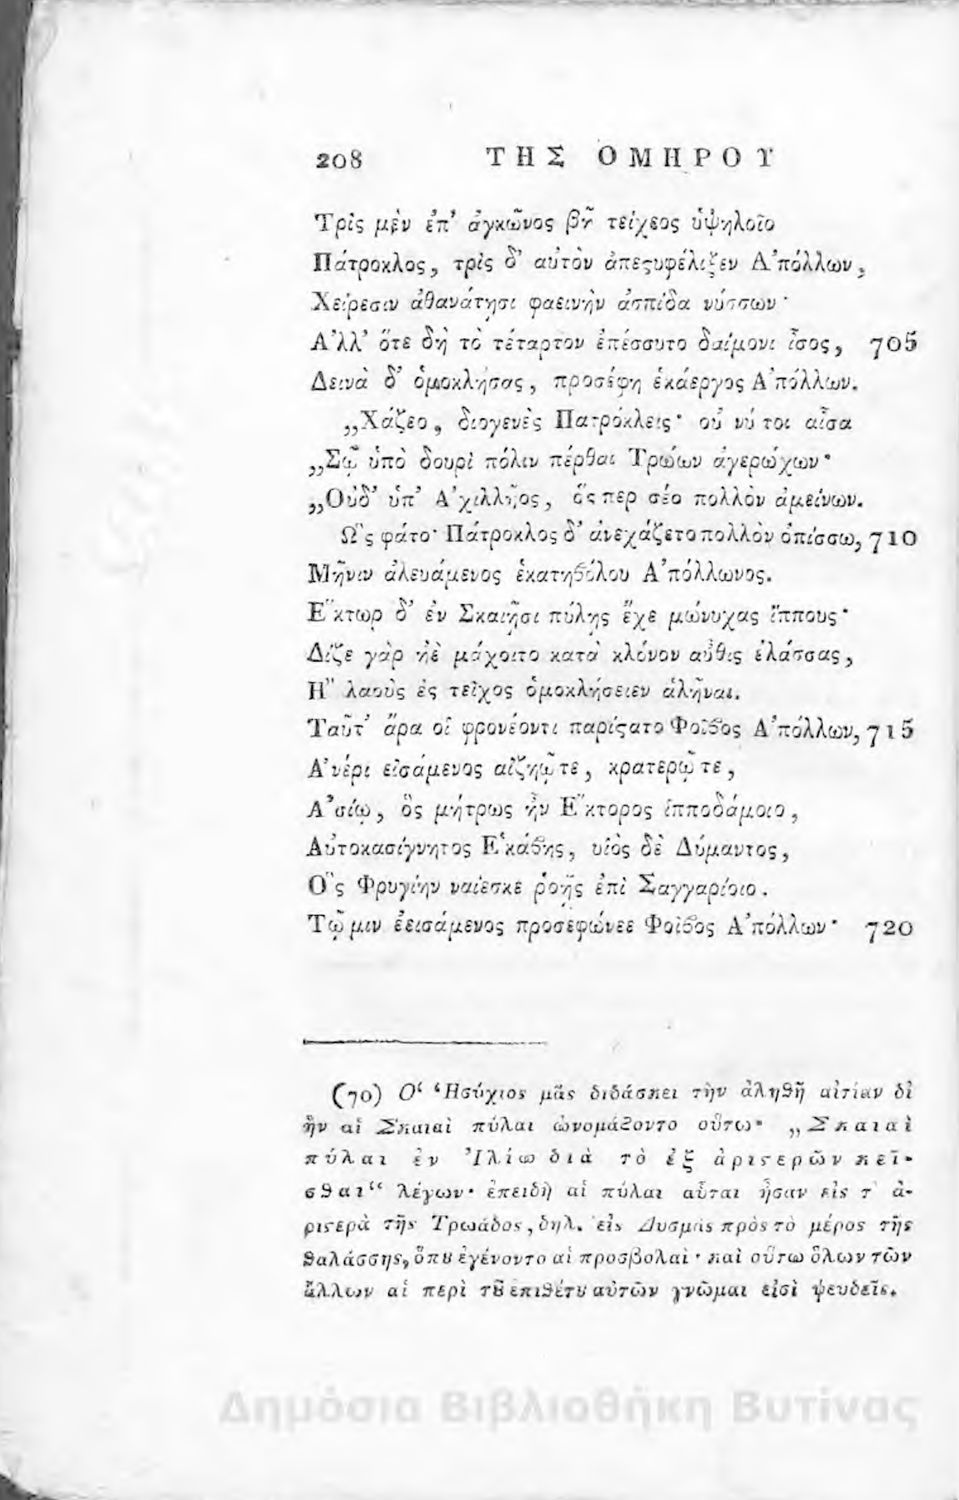 208 ΤΗΣ ΟΜΗΡΟΥ
Τρὶς μὲν ἐπ' ἀγκῶνος βῆ τείχεος ὑψηλοῖο
Πάτροκλος, τρὶς δ' αὐτὸν ἀπεςυφέλιξεν Α'πόλλων,
Χείρεσιν ἀθανάτῃσι φαεινὴν ἀσπίδα νύσσων·
Α'λλ' ὅτε δὴ τὸ τέταρτον ἐπέσσυτο δαίμονι ἶσος, 705
Δεινὰ δ' ὁμοκλήσας, προσέφη ἑκάεργος Α'πόλλων.
„Χάζεο, διογενὲς Πατρόκλεις· οὔ νύ τοι αἶσα
„Σῷ ὑπὸ δουρὶ πόλιν πέρθαι Τρώων ἀγερώχων·
„Οὐδ' ὑπ' Α'χιλλῆος, ὅς περ σέο πολλὸν ἀμείνων.
Ω῝ς φάτο· Πάτροκλος δ' ἀνεχάζετο πολλὸν ὀπίσσω, 710
Μῆνιν ἀλευάμενος ἑκατηβόλου Α'πόλλωνος.
Ε῞κτωρ δ' ἐν Σκαιῇσι πύλῃς ἔχε μώνυχας ἵππους·
Δίζε γὰρ ἠὲ μάχοιτο κατὰ κλόνον αὖθις ἐλάσσας,
Η῎ λαοὺς ἐς τεῖχος ὁμοκλήσειεν ἀλῆναι.
Ταῦτ' ἄρα οἱ φρονέοντι παρίςατο Φοῖβος Α'πόλλων, 715
Α'νέρι εἰσάμενος αἰζηῷ τε, κρατερῷ τε,
Α'σίῳ, ὃς μήτρως ἦν Ε῞κτορος ἱπποδάμοιο,
Αὐτοκασίγνητος Ε῾κάβης, υἱὸς δὲ Δύμαντος,
Ο῝ς Φρυγίην ναίεσκε ῥοῇς ἐπὶ Σαγγαρίοιο.
Τῷ μιν ἐεισάμενος προσεφώνεε Φοῖβος Α'πόλλων· 720
(70) Ο῾ Ἡσύχιος μᾶς διδάσκει τὴν ἀληθῆ αἰτίαν δἰ
ἣν αἱ Σκαιαὶ πύλαι ὠνομάζοντο οὕτω· „Σκαιαὶ
πύλαι ἐν Ἰλίῳ διὰ τὸ ἐξ ἀριςερῶν κεῖ-
σθαι“ λέγων· ἐπειδὴ αἱ πύλαι αὗται ἦσαν εἰς τ' ἀ-
ριςερὰ τῆς Τρωάδος, δηλ. εἰς Δυσμὰς πρὸς τὸ μέρος τῆς
θαλάσσης, ὅπȣ ἐγένοντο αἱ προσβολαὶ· καὶ οὕτω ὅλων τῶν
ἄλλων αἱ περὶ τȣ͂ ἐπιθέτȣ αὐτῶν γνῶμαι εἰσὶ ψευδεῖς.
Δημόσια Βιβλιοθήκη Βυτίνας